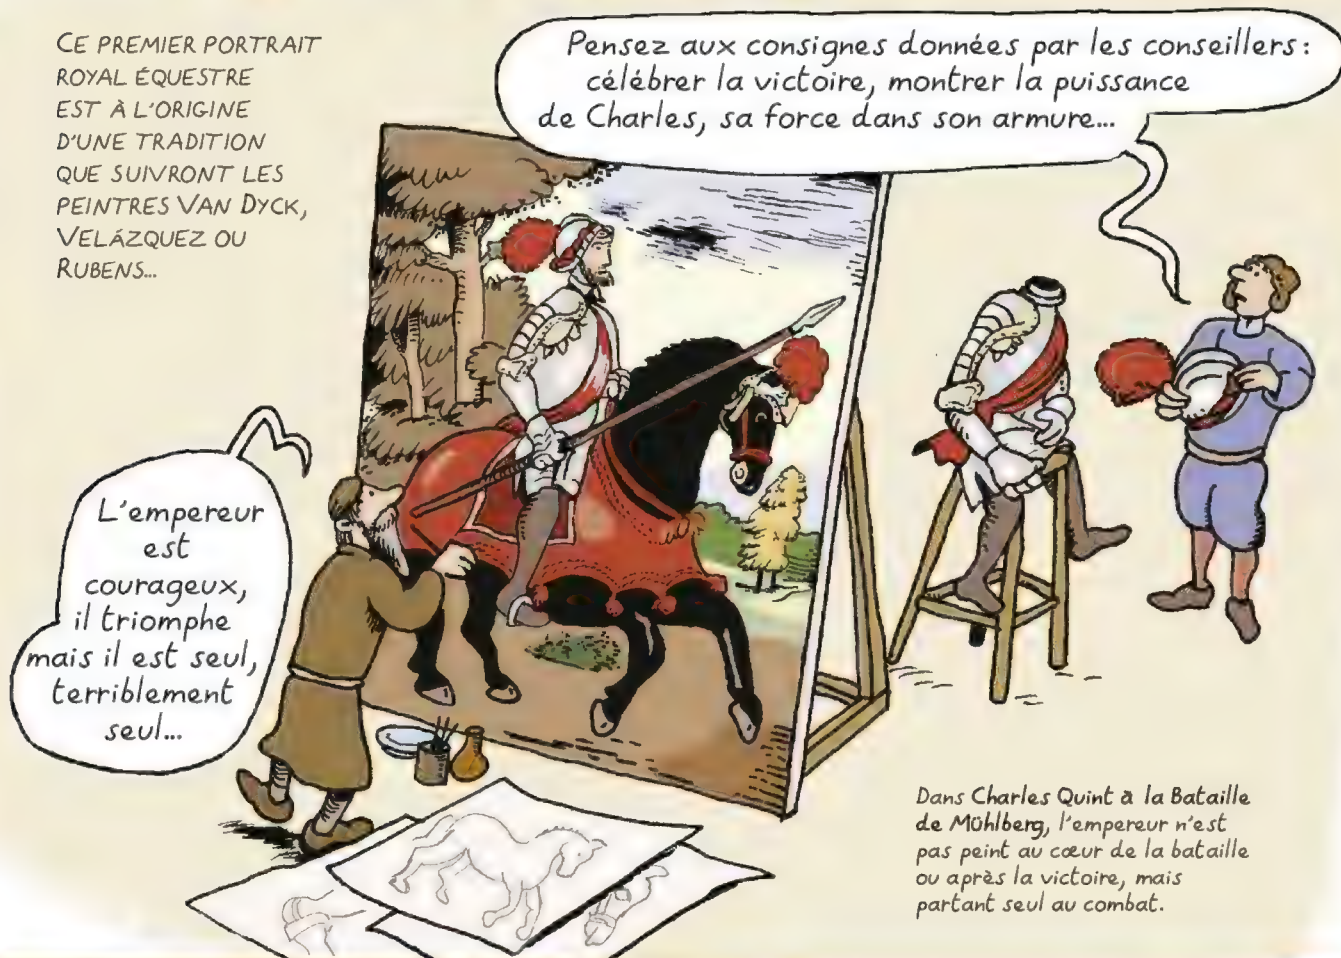 CE PREMIER PORTRAIT
ROYAL ÉQUESTRE
EST À L'ORIGINE
D'UNE TRADITION
QUE SUIVRONT LES
PEINTRES VAN DYCK,
VELÁZQUEZ OU
RUBENS...
Pensez aux consignes données par les conseillers :
célébrer la victoire, montrer la puissance
de Charles, sa force dans son armure...
L'empereur
est
courageux,
il triomphe
mais il est seul,
terriblement
seul...
Dans Charles Quint à la Bataille
de Mühlberg, l'empereur n'est
pas peint au cœur de la bataille
ou après la victoire, mais
partant seul au combat.